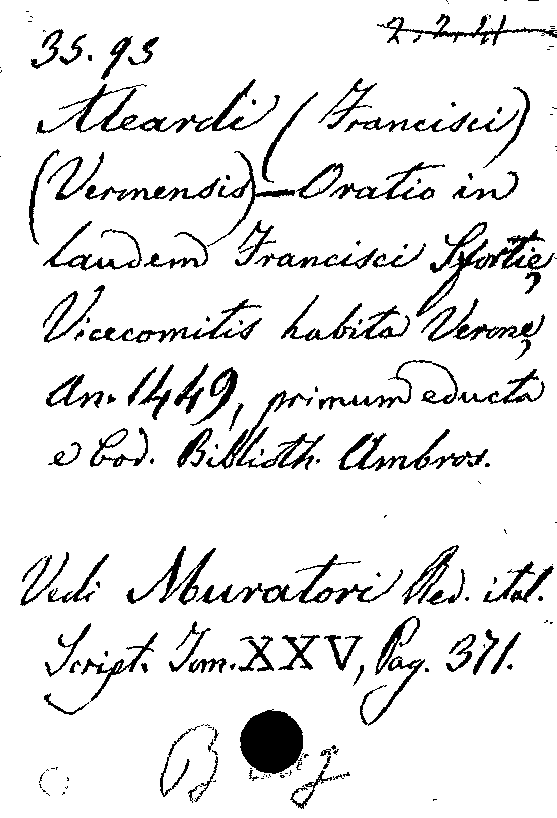 2.2.41
35.93
Aleardi (Francisci)
(Veronensis) — Oratio in
laudem Francisci Sfortię
Vicecomitis habita Veronę
An. 1449, primum educta
e Cod. Biblioth. Ambros.
Vedi Muratori Red. ital.
Script. Tom. XXV, Pag. 371.